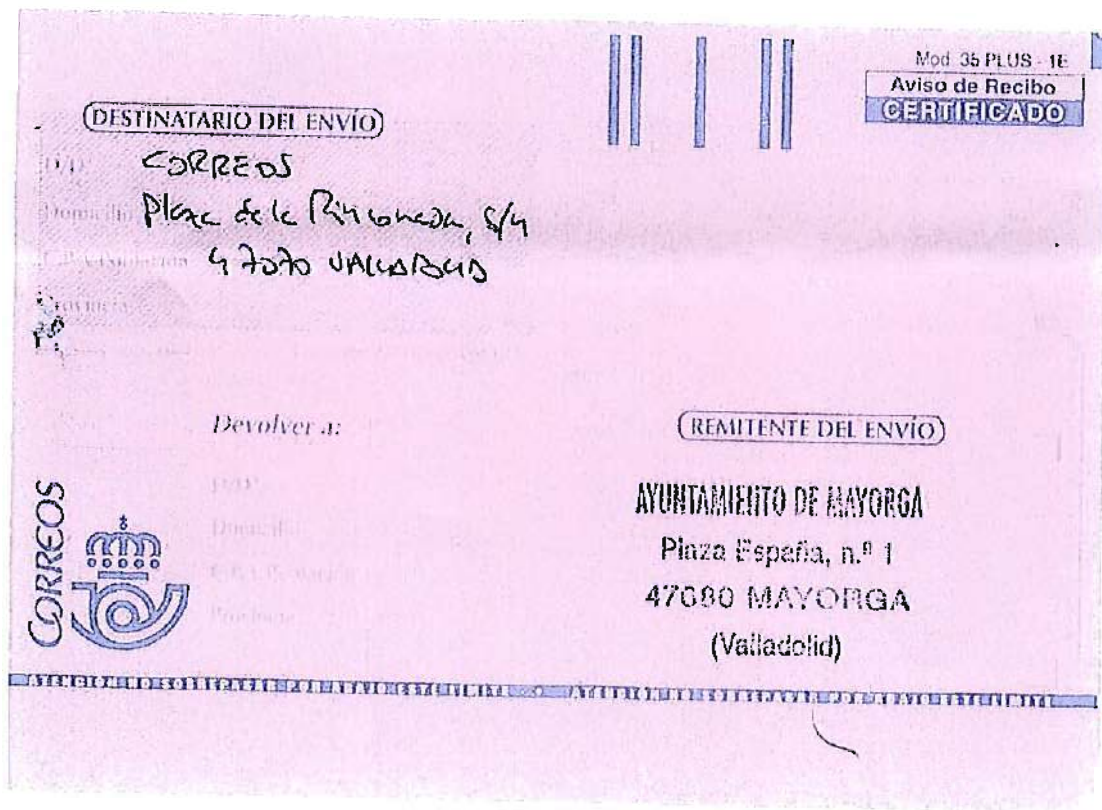 Mod. 35 PLUS - 1E
Aviso de Recibo
CERTIFICADO
DESTINATARIO DEL ENVÍO
CORREOS
Plaza de la Rinconada, s/n
47070 VALLADOLID
Provincia
Devolver a:
REMITENTE DEL ENVÍO
AYUNTAMIENTO DE MAYORGA
Plaza España, n.º 1
47680 MAYORGA
(Valladolid)
CORREOS
ATENCION NO SOBREPASAR POR ABAJO ESTE LIMITE ATENCION NO SOBREPASAR POR ABAJO ESTE LIMITE